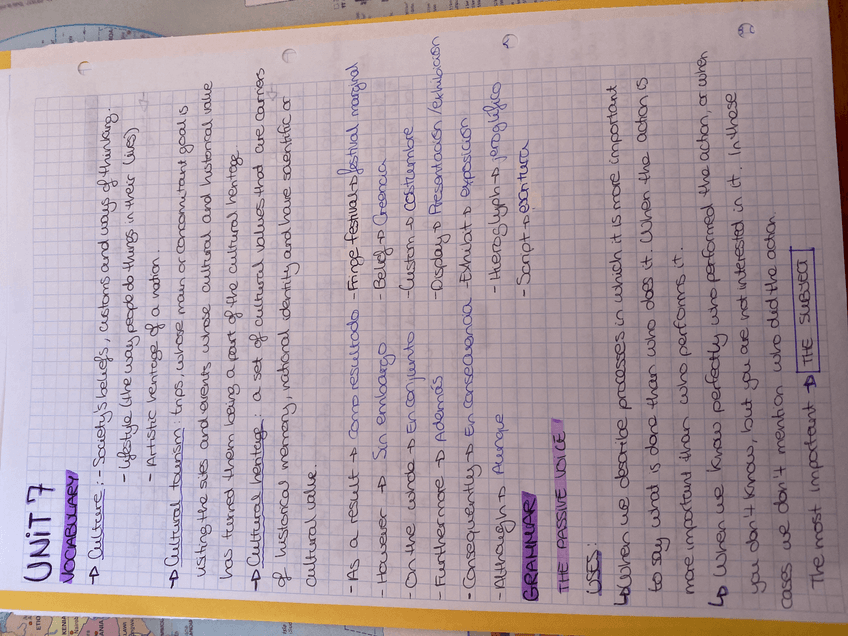 UNIT 7
VOCABULARY
→ Culture: - Society's beliefs, customs and ways of thinking.
- Lifestyle (the way people do things in their lives)
- Artistic heritage of a nation.
→ Cultural tourism: trips, whose main or concomitant goal is
visiting the sites and events whose cultural and historical value
has turned them being a part of the cultural heritage.
→ Cultural heritage: a set of cultural values that are carriers
of historical memory, national identity and have scientific or
cultural value.
- As a result → Como resultado - Fringe festival → festival marginal
- However → Sin embargo - Belief → Creencia
- On the whole → En conjunto - Custom → costumbre
- Furthermore → Además - Display → Presentación/exhibición
- Consequently → En consecuencia - Exhibit → exposición
- Although → Aunque - Hieroglyph → jeroglífico
- Script → escritura
GRAMMAR
THE PASSIVE VOICE
USES:
↳ When we describe processes in which it is more important
to say what is done than who does it. When the action is
more important than who performs it.
↳ When we know perfectly who performed the action, or when
you don't know, but you are not interested in it. In these
cases we don't mention who did the action.
The most important → THE SUBJECT